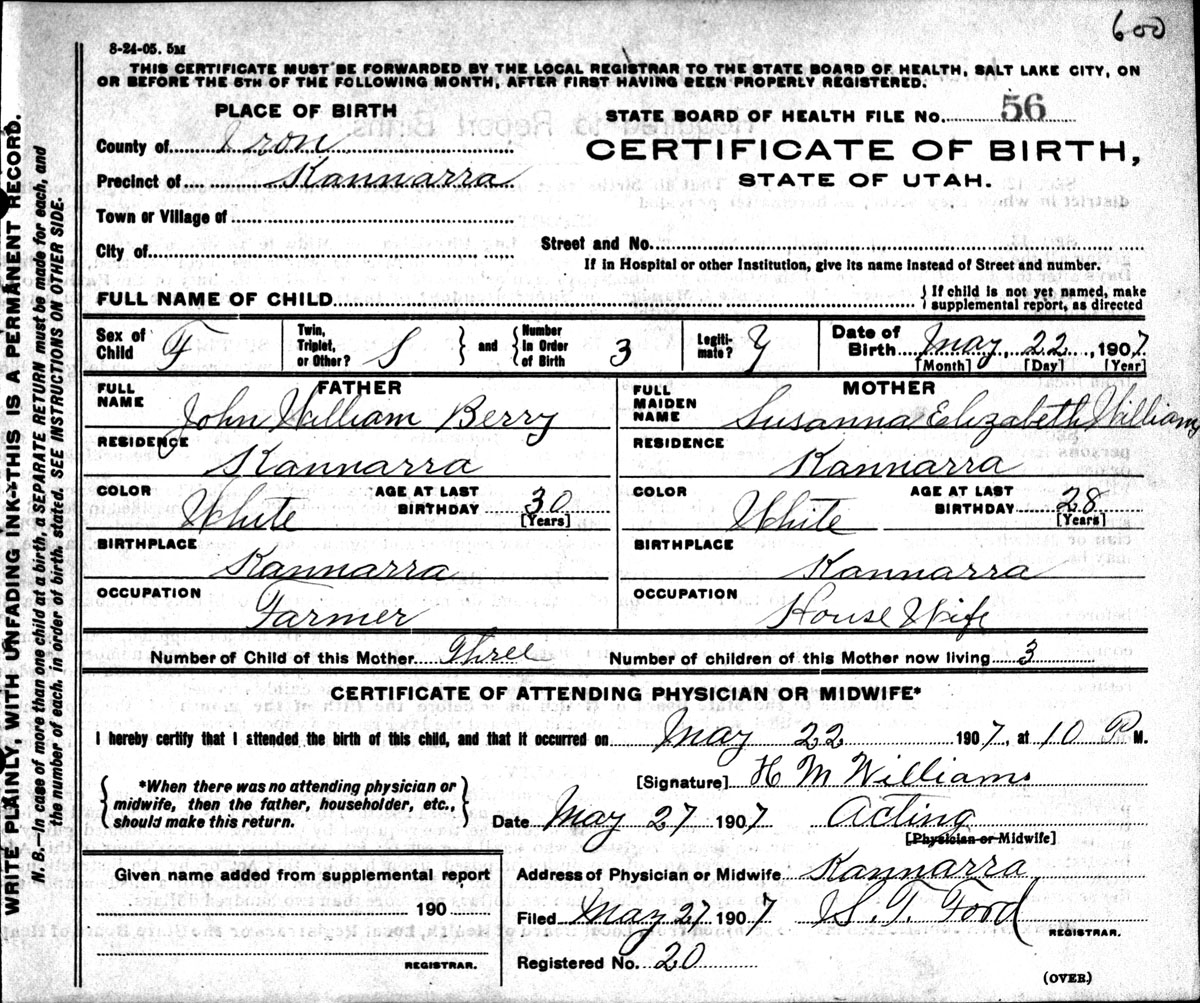 600
8-24-05. 5M
THIS CERTIFICATE MUST BE FORWARDED BY THE LOCAL REGISTRAR TO THE STATE BOARD OF HEALTH, SALT LAKE CITY, ON
OR BEFORE THE 5TH OF THE FOLLOWING MONTH, AFTER FIRST HAVING BEEN PROPERLY REGISTERED.
PLACE OF BIRTH
STATE BOARD OF HEALTH FILE No. 56
County of Iron
CERTIFICATE OF BIRTH,
Precinct of Kannarra
STATE OF UTAH.
Town or Village of
City of
Street and No.
If in Hospital or other Institution, give its name instead of Street and number.
FULL NAME OF CHILD
{ If child is not yet named, make
supplemental report, as directed
Sex of Child F
Twin, Triplet, or Other? S } and { Number in Order of Birth 3
Legitimate? Y
Date of Birth May, 22, 1907
[Month] [Day] [Year]
FATHER
MOTHER
FULL NAME John William Berry
FULL MAIDEN NAME Susanna Elizabeth Williams
RESIDENCE Kannarra
RESIDENCE Kannarra
COLOR White AGE AT LAST BIRTHDAY 30 [Years]
COLOR White AGE AT LAST BIRTHDAY 28 [Years]
BIRTHPLACE Kannarra
BIRTHPLACE Kannarra
OCCUPATION Farmer
OCCUPATION House Wife
Number of Child of this Mother Three Number of children of this Mother now living 3
CERTIFICATE OF ATTENDING PHYSICIAN OR MIDWIFE*
I hereby certify that I attended the birth of this child, and that it occurred on May 22 1907, at 10 P M.
{ *When there was no attending physician or
midwife, then the father, householder, etc.,
should make this return. }
[Signature] H M Williams
Date May 27 1907 Acting
[Physician or Midwife]
Given name added from supplemental report
190
REGISTRAR.
Address of Physician or Midwife Kannarra
Filed May 27 1907 S. T. Ford
REGISTRAR.
Registered No. 20
(OVER.)
WRITE PLAINLY, WITH UNFADING INK--THIS IS A PERMANENT RECORD.
N. B.—In case of more than one child at a birth, a SEPARATE RETURN must be made for each, and
the number of each, in order of birth, stated. SEE INSTRUCTIONS ON OTHER SIDE.